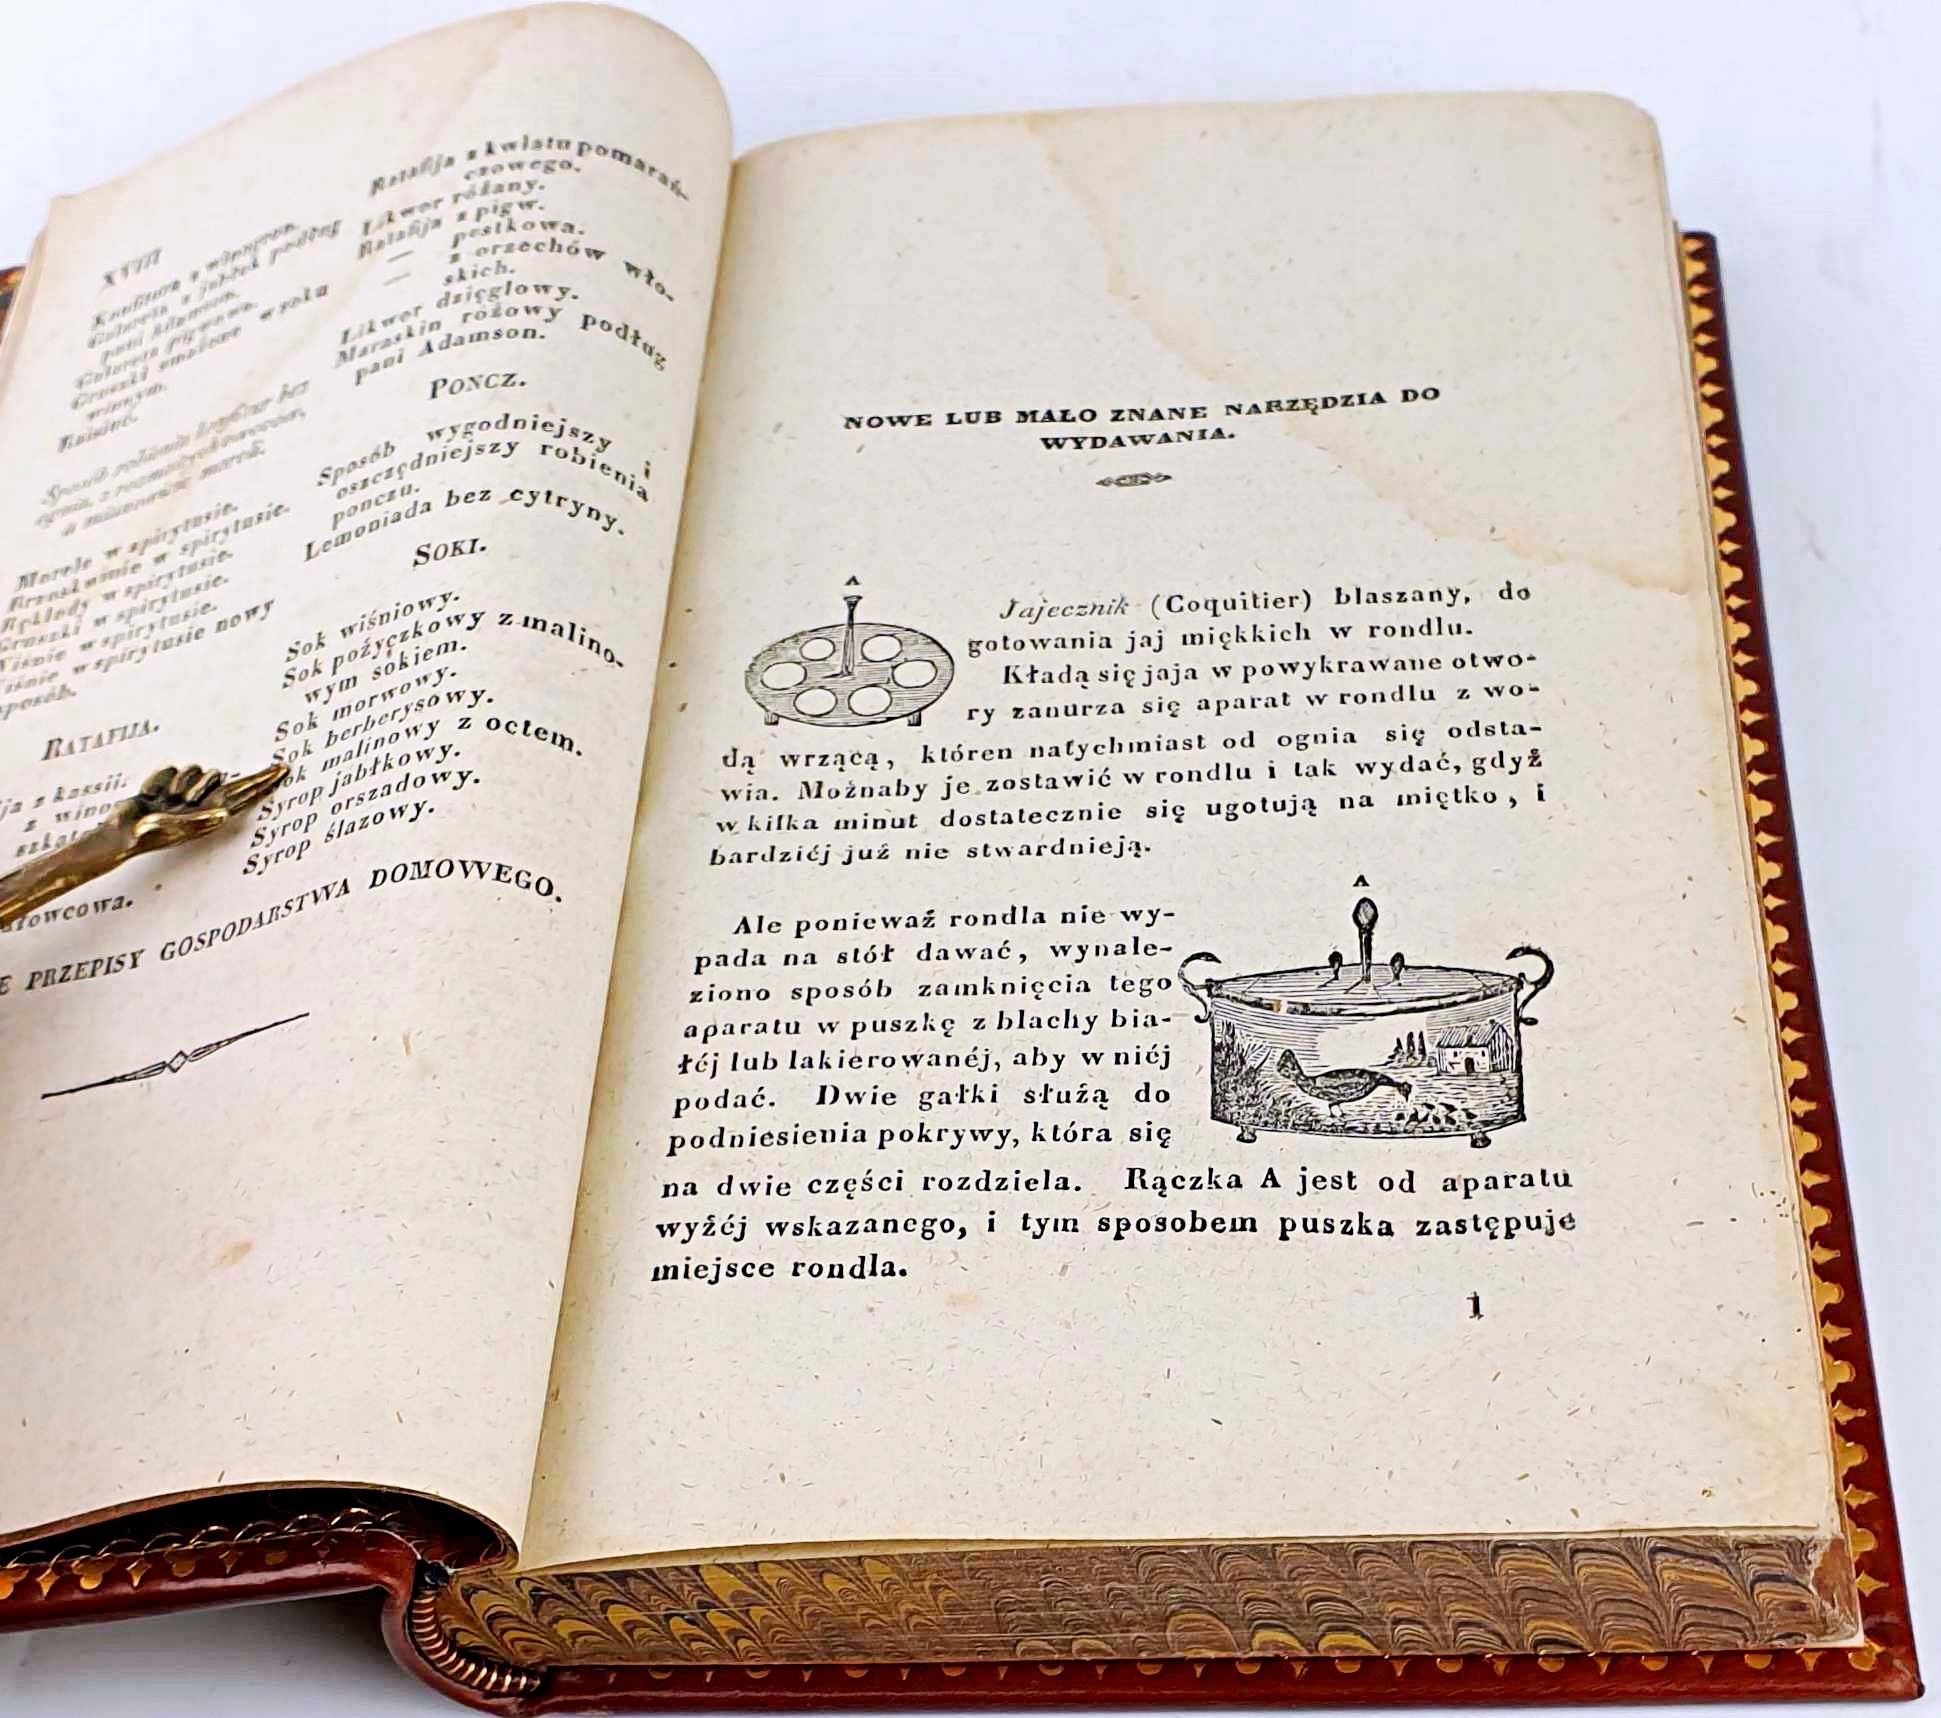 XVIII
Konfitura z winogron.
Galareta z jabłek podług
pani Adamson.
Galareta pigwowa.
Gruszki smażone w soku
winnym.
Raisiné.
Morele w spirytusie.
Brzoskwinie w spirytusie.
Ręklody w spirytusie.
Gruszki w spirytusie.
Wiśnie w spirytusie.
Wiśnie w spirytusie nowy
sposób.
RATAFIJA.
z kassii.
z wino-
łowcowa.
Ratafija z kwiatu pomarań-
czowego.
Likwor różany.
Ratafija z pigw.
— pestkowa.
— z orzechów wło-
skich.
Likwor dzięglowy.
Maraskin różowy podług
pani Adamson.
PONCZ.
Sposób wygodniejszy i
oszczędniejszy robienia
ponczu.
Lemoniada bez cytryny.
SOKI.
Sok wiśniowy.
Sok pożyczkowy z malino-
wym sokiem.
Sok morwowy.
Sok berberysowy.
Sok malinowy z octem.
Syrop jabłkowy.
Syrop orszadowy.
Syrop ślazowy.
E PRZEPISY GOSPODARSTWA DOMOWEGO.
NOWE LUB MAŁO ZNANE NARZĘDZIA DO
WYDAWANIA.
A
Jajecznik (Coquitier) blaszany, do
gotowania jaj miękkich w rondlu.
Kładą się jaja w powykrawane otwo-
ry zanurza się aparat w rondlu z wo-
dą wrzącą, któren natychmiast od ognia się odsta-
wia. Możnaby je zostawić w rondlu i tak wydać, gdyż
w kilka minut dostatecznie się ugotują na miętko, i
bardziéj już nie stwardnieją.
A
Ale ponieważ rondla nie wy-
pada na stół dawać, wynale-
ziono sposób zamknięcia tego
aparatu w puszkę z blachy bia-
łéj lub lakierowanéj, aby w niéj
podać. Dwie gałki służą do
podniesienia pokrywy, która się
na dwie części rozdziela. Rączka A jest od aparatu
wyżéj wskazanego, i tym sposobem puszka zastępuje
miejsce rondla.
1